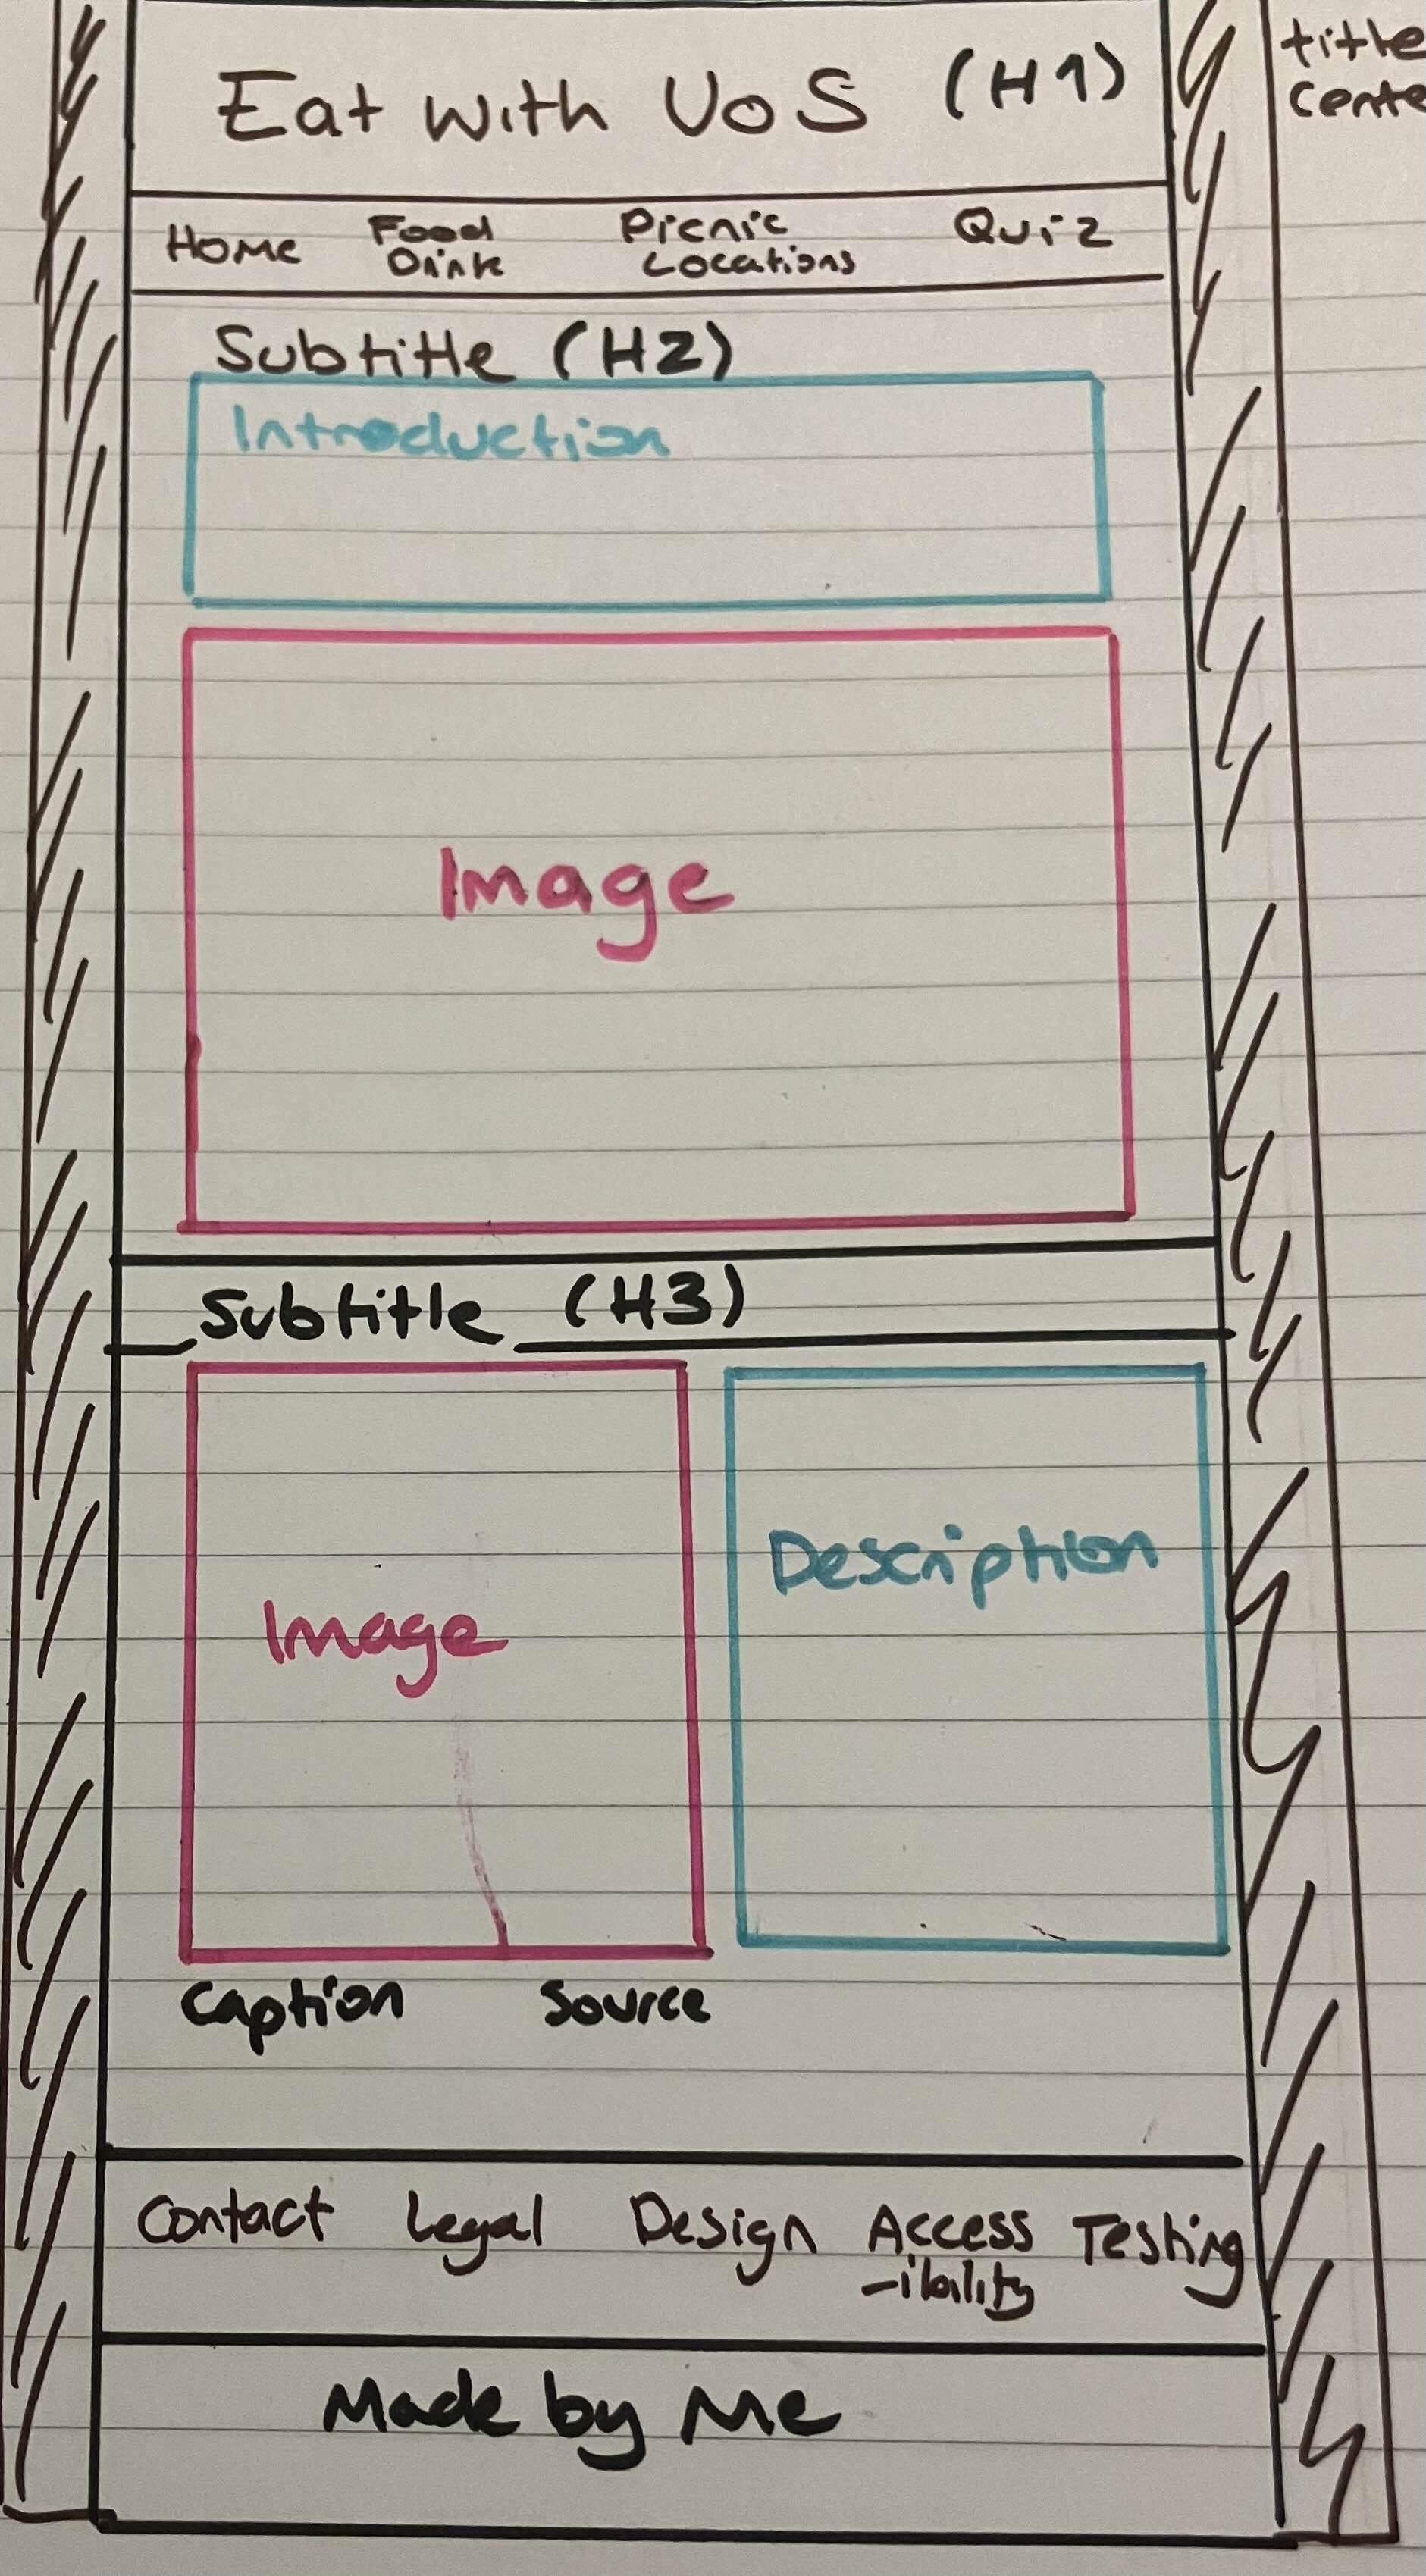 Eat with UoS (H1)
title
Cente
Home Food Picnic Quiz
Drink Locations
Subtitle (H2)
Introduction
Image
Subtitle (H3)
Image Description
Caption Source
Contact Legal Design Access Testing
-ibility
Made by Me